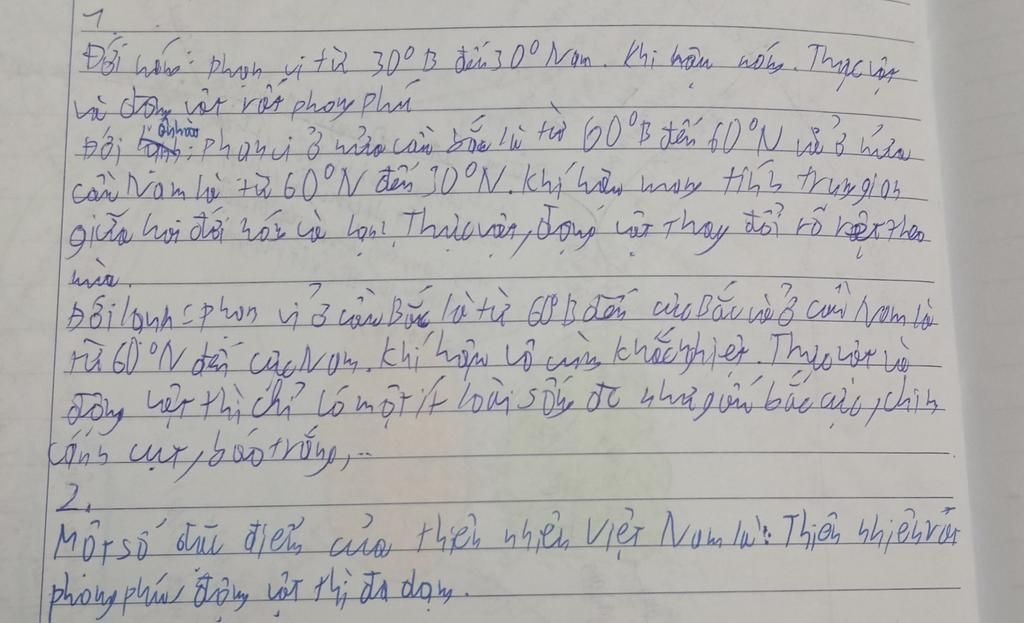 1
Đới nóng: phạm vi từ 30°B đến 30° Nam. Khí hậu nóng. Thực vật
và động vật rất phong phú
Đới ôn hòa: phạm vi ở nửa cầu bắc là từ 60°B đến 60°N và ở nửa
cầu Nam là từ 60°N đến 30°N. Khí hậu mang tính trung gian
giữa hai đới nóng và lạnh. Thực vật, động vật thay đổi rõ rệt theo
mùa.
Đới lạnh: phạm vi ở cầu Bắc là từ 60°B đến cực Bắc và ở cầu Nam là
từ 60°N đến cực Nam. Khí hậu vô cùng khắc nghiệt. Thực vật và
động vật thì chỉ có một ít loài sống đc như gấu bắc cực, chim
cánh cụt, báo trắng,...
2.
Một số đặc điểm của thiên nhiên Việt Nam là: Thiên nhiên rất
phong phú, động vật thì đa dạng.